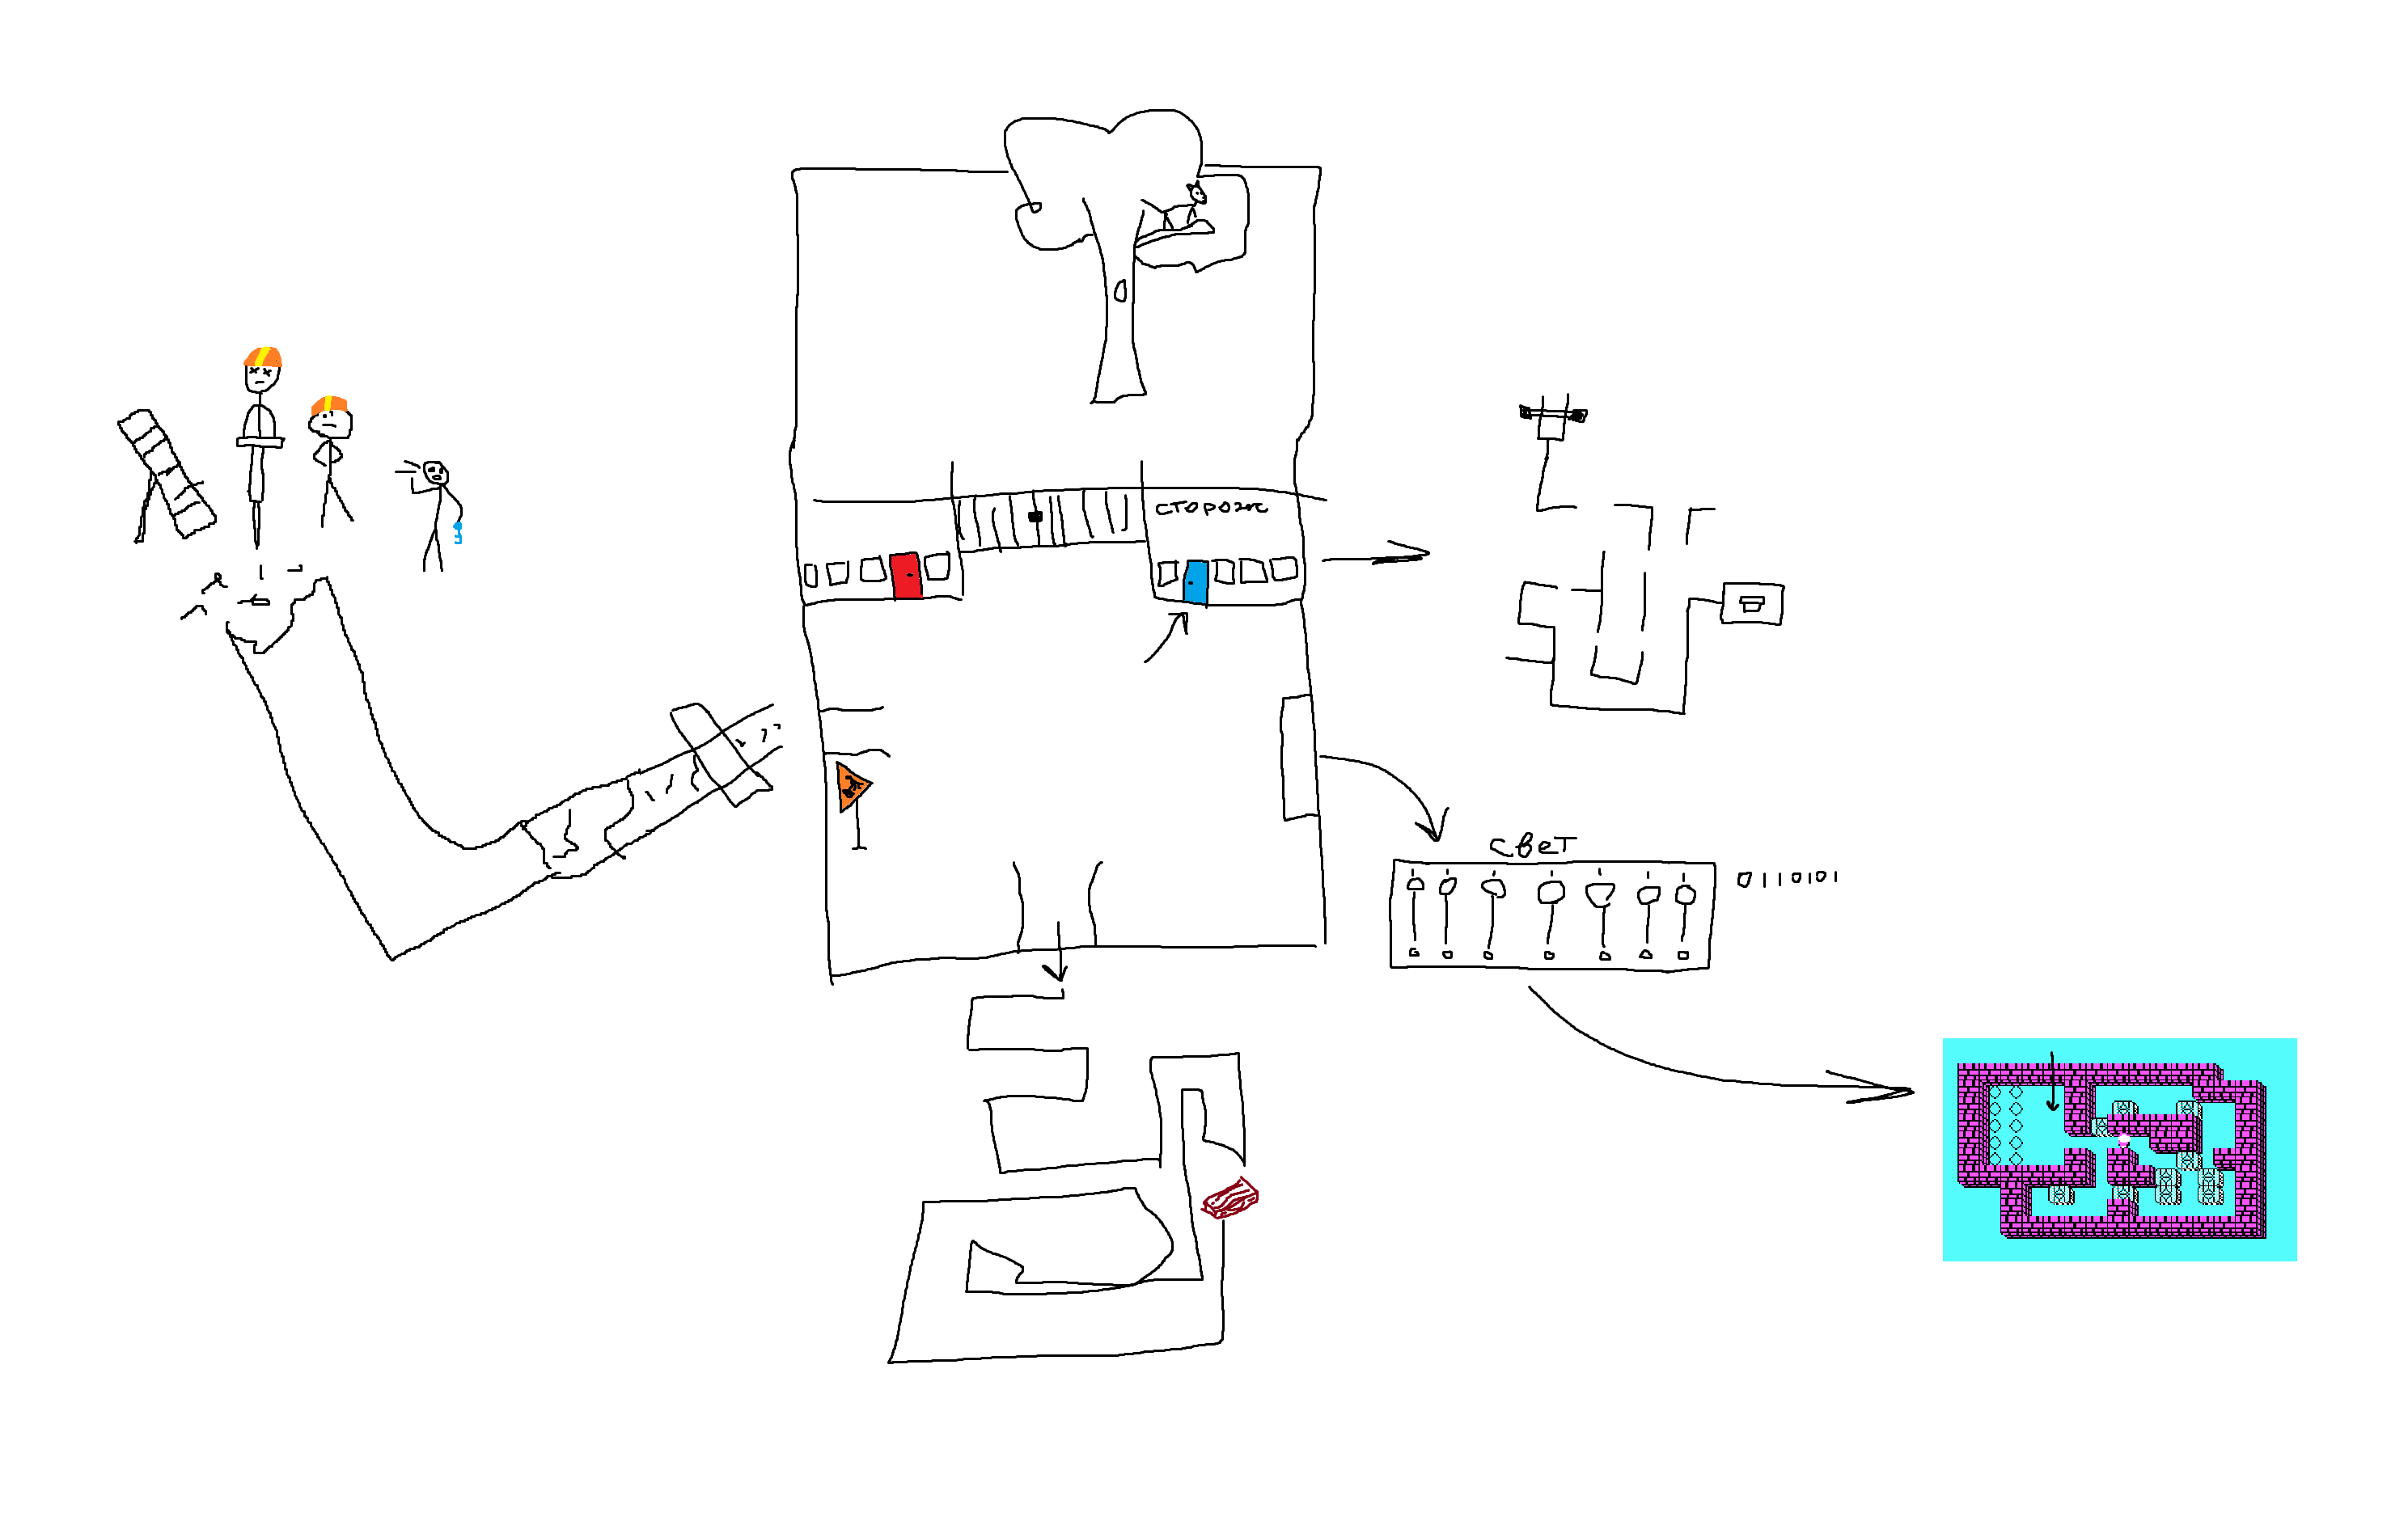 сторож
свет
0110101